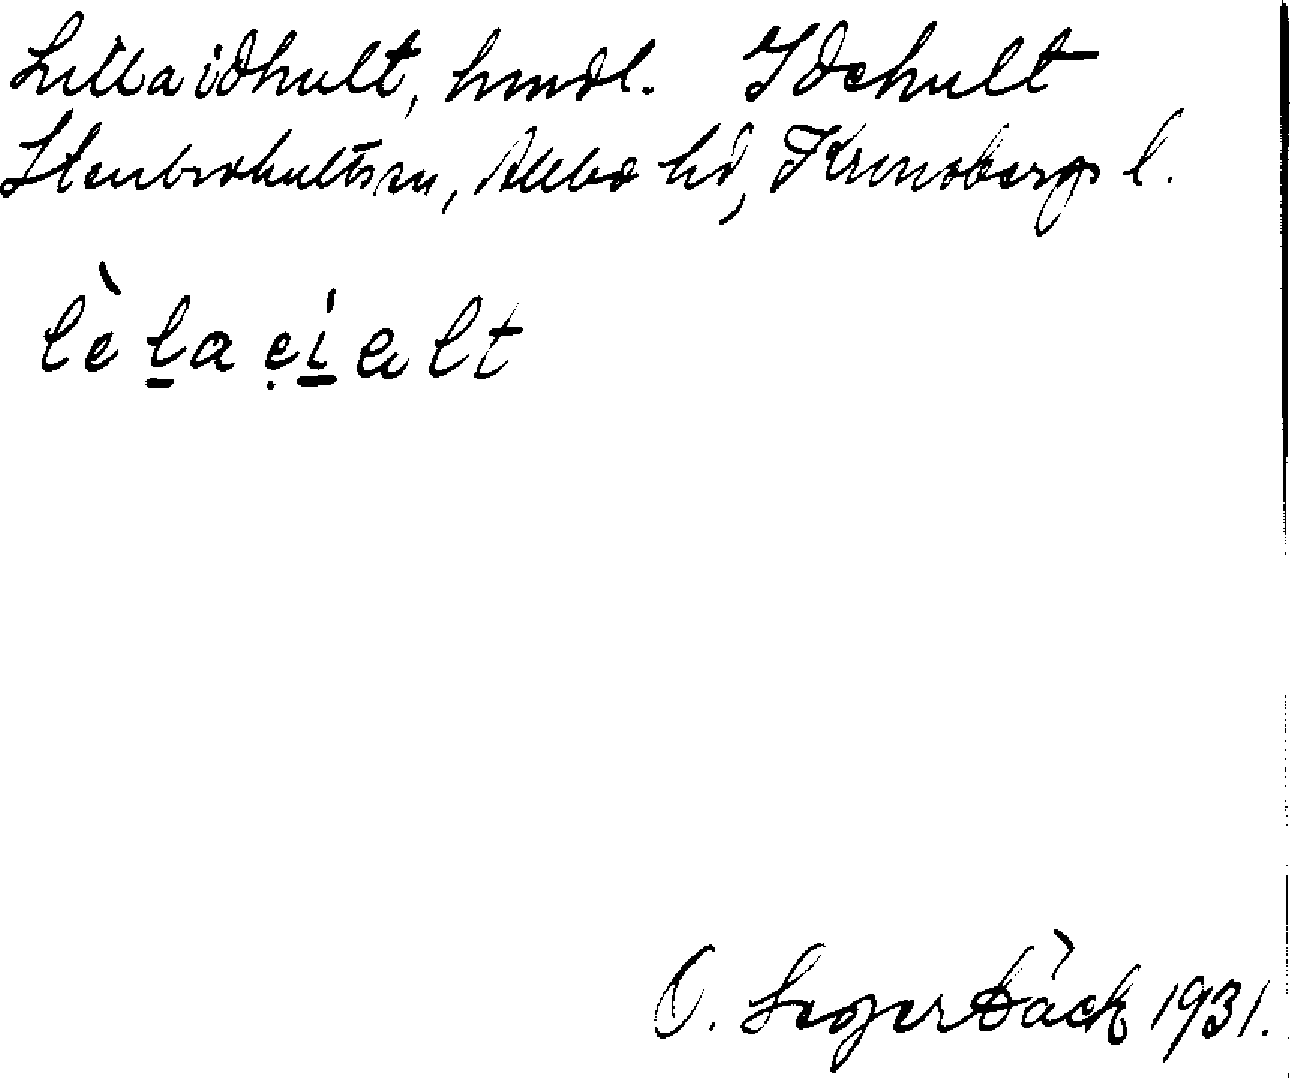 Lilla idhult, hmdl. Idehult
Stenbrohults sn, Allbo hd, Kronobergs l.
lèḻa ẹi̱alt
B. Segerbäck 1931.